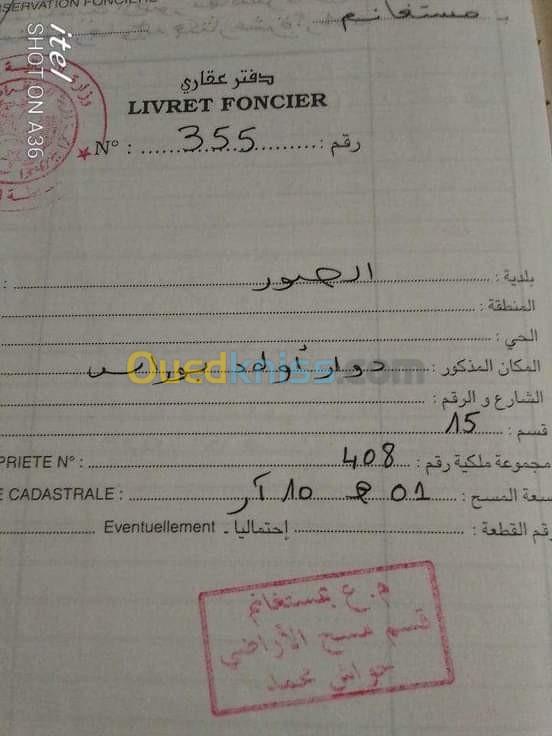 NSERVATION FONCIERE
مستغانم
دفتر عقاري
LIVRET FONCIER
N° : 355 رقم :
بلدية : الصور
المنطقة :
الحي :
المكان المذكور : دوار أولاد بوراس
الشارع و الرقم :
قسم : 15
PRIETE N° : 408 مجموعة ملكية رقم :
E CADASTRALE : 01 هـ 10 آر سعة المسح :
Eventuellement - إحتماليا رقم القطعة :
م.ع بمستغانم
قسم مسح الأراضي
محمد
itel
SHOT ON A36
Ouedkniss.com